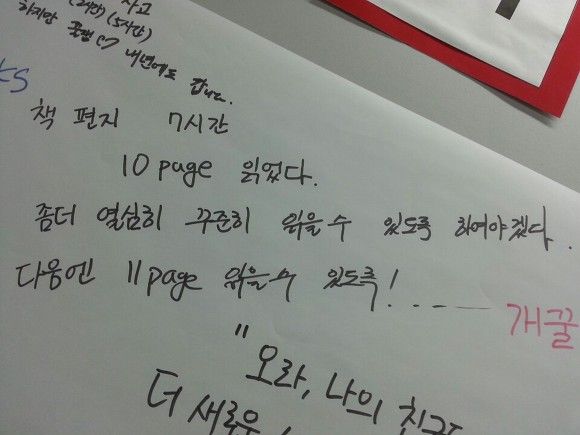 사고
(5시간)
하지만 꿈별 내년에도 합니다.
ts
책 편지 7시간
10 page 읽었다.
좀더 열심히 꾸준히 읽을수 있도록 하여야겠다.
다음엔 11page 읽을수 있도록!..
개꿀
"오라, 나의 친구
더 새로운